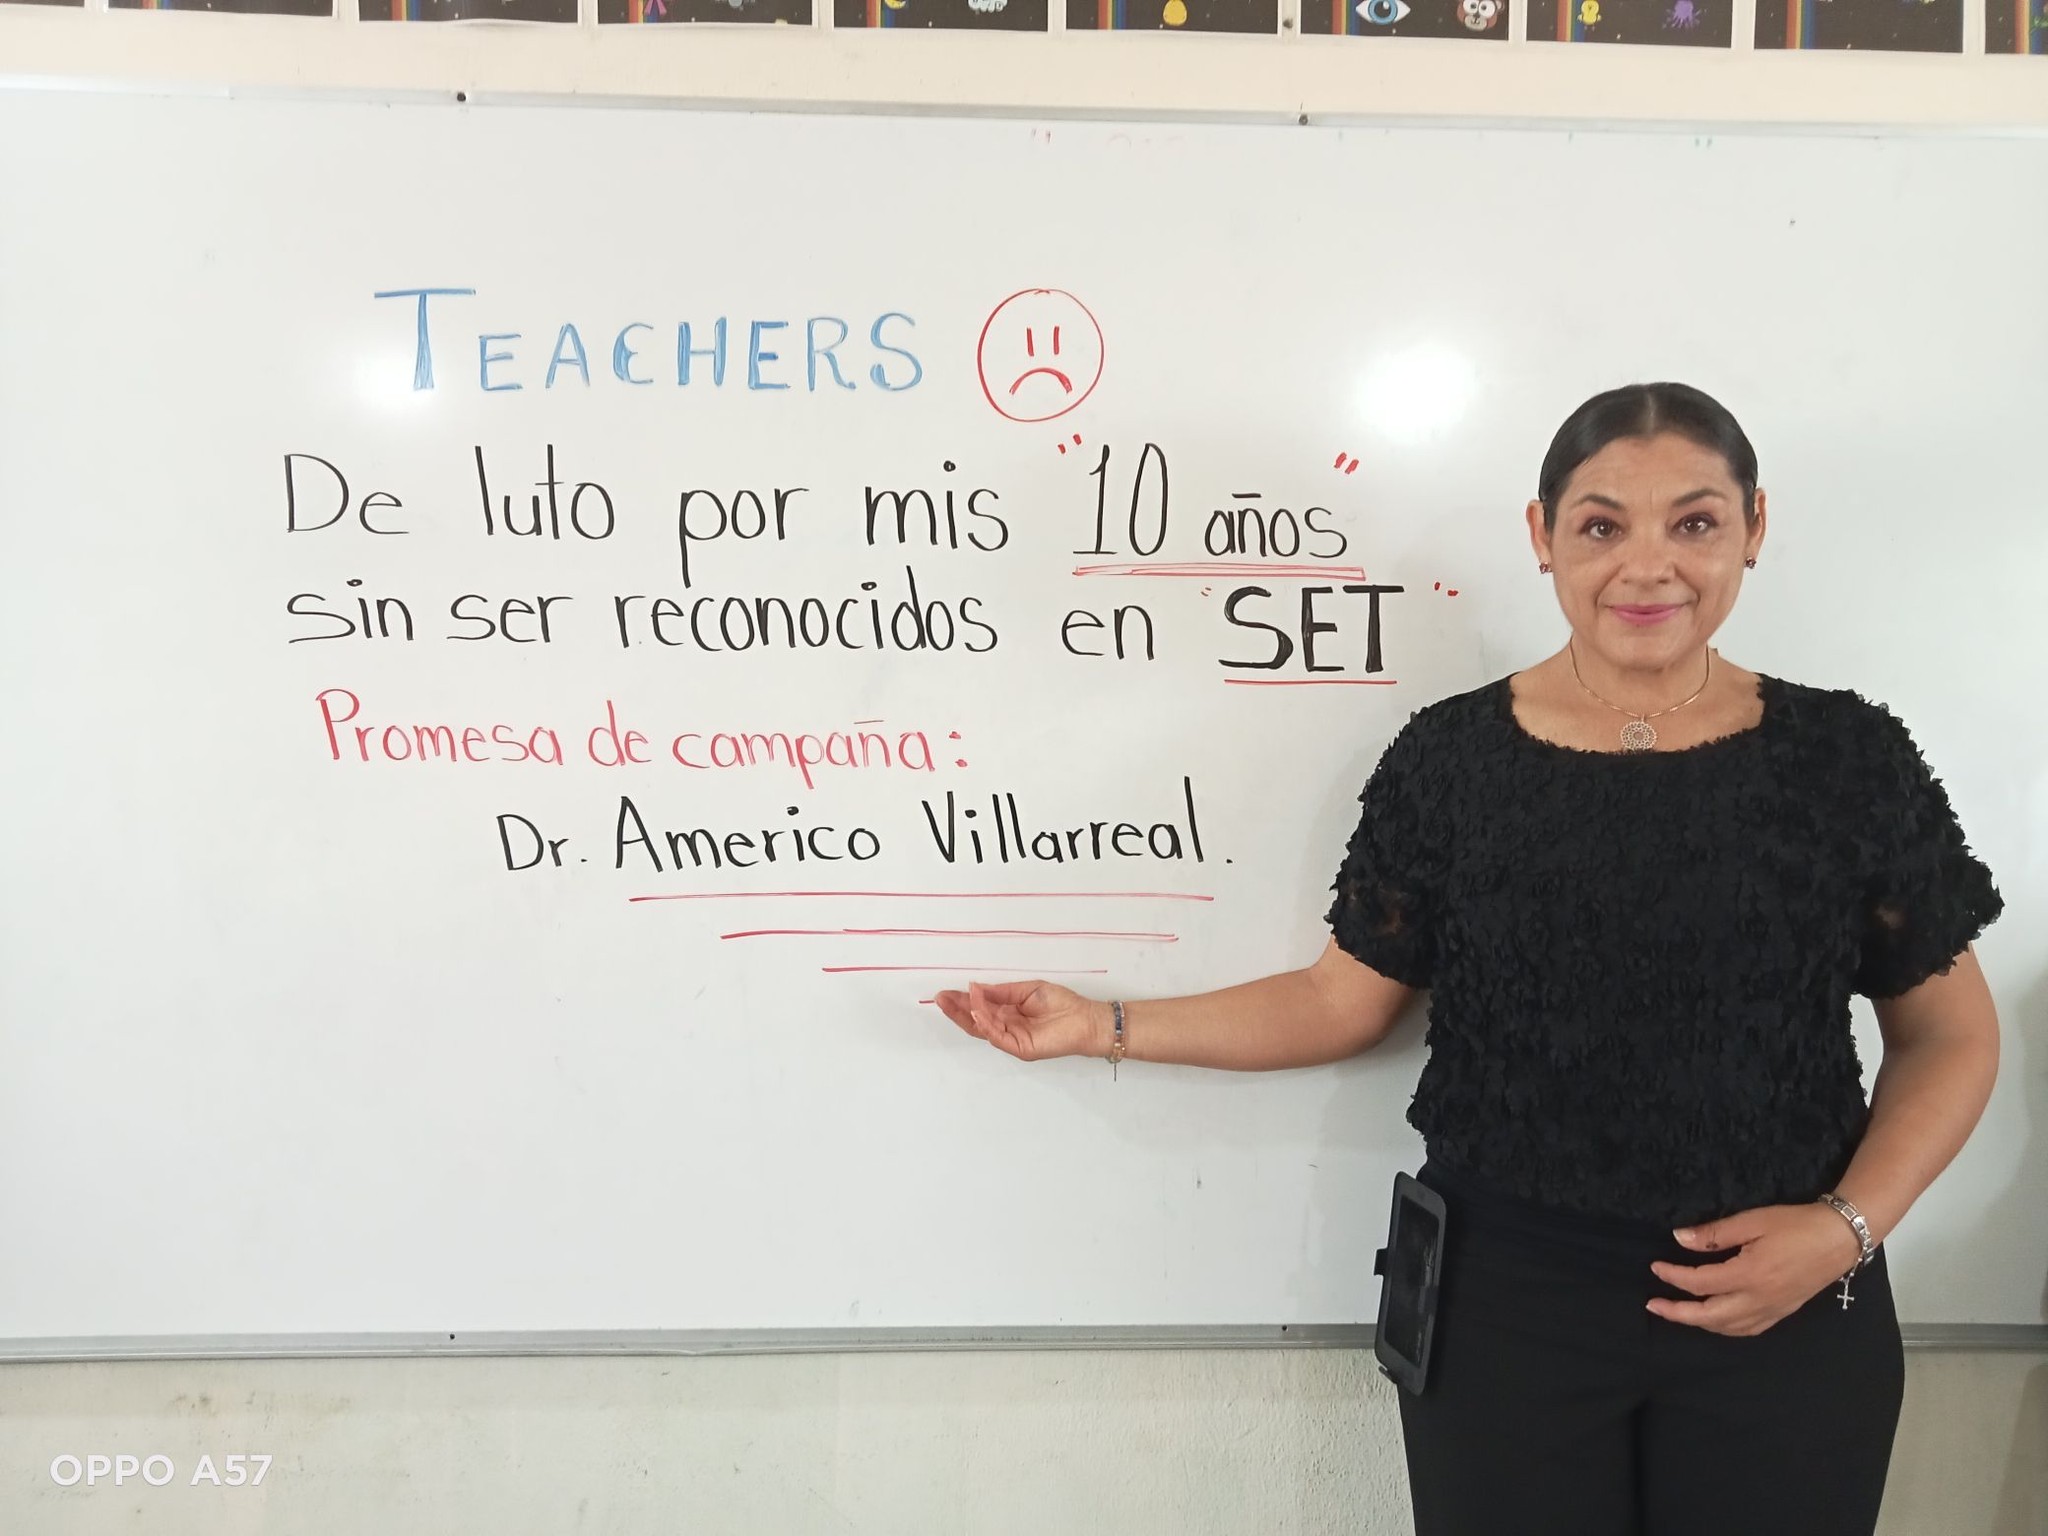 TEACHERS
De luto por mis "10 años"
sin ser reconocidos en "SET"
Promesa de campaña:
Dr. Americo Villarreal.
OPPO A57